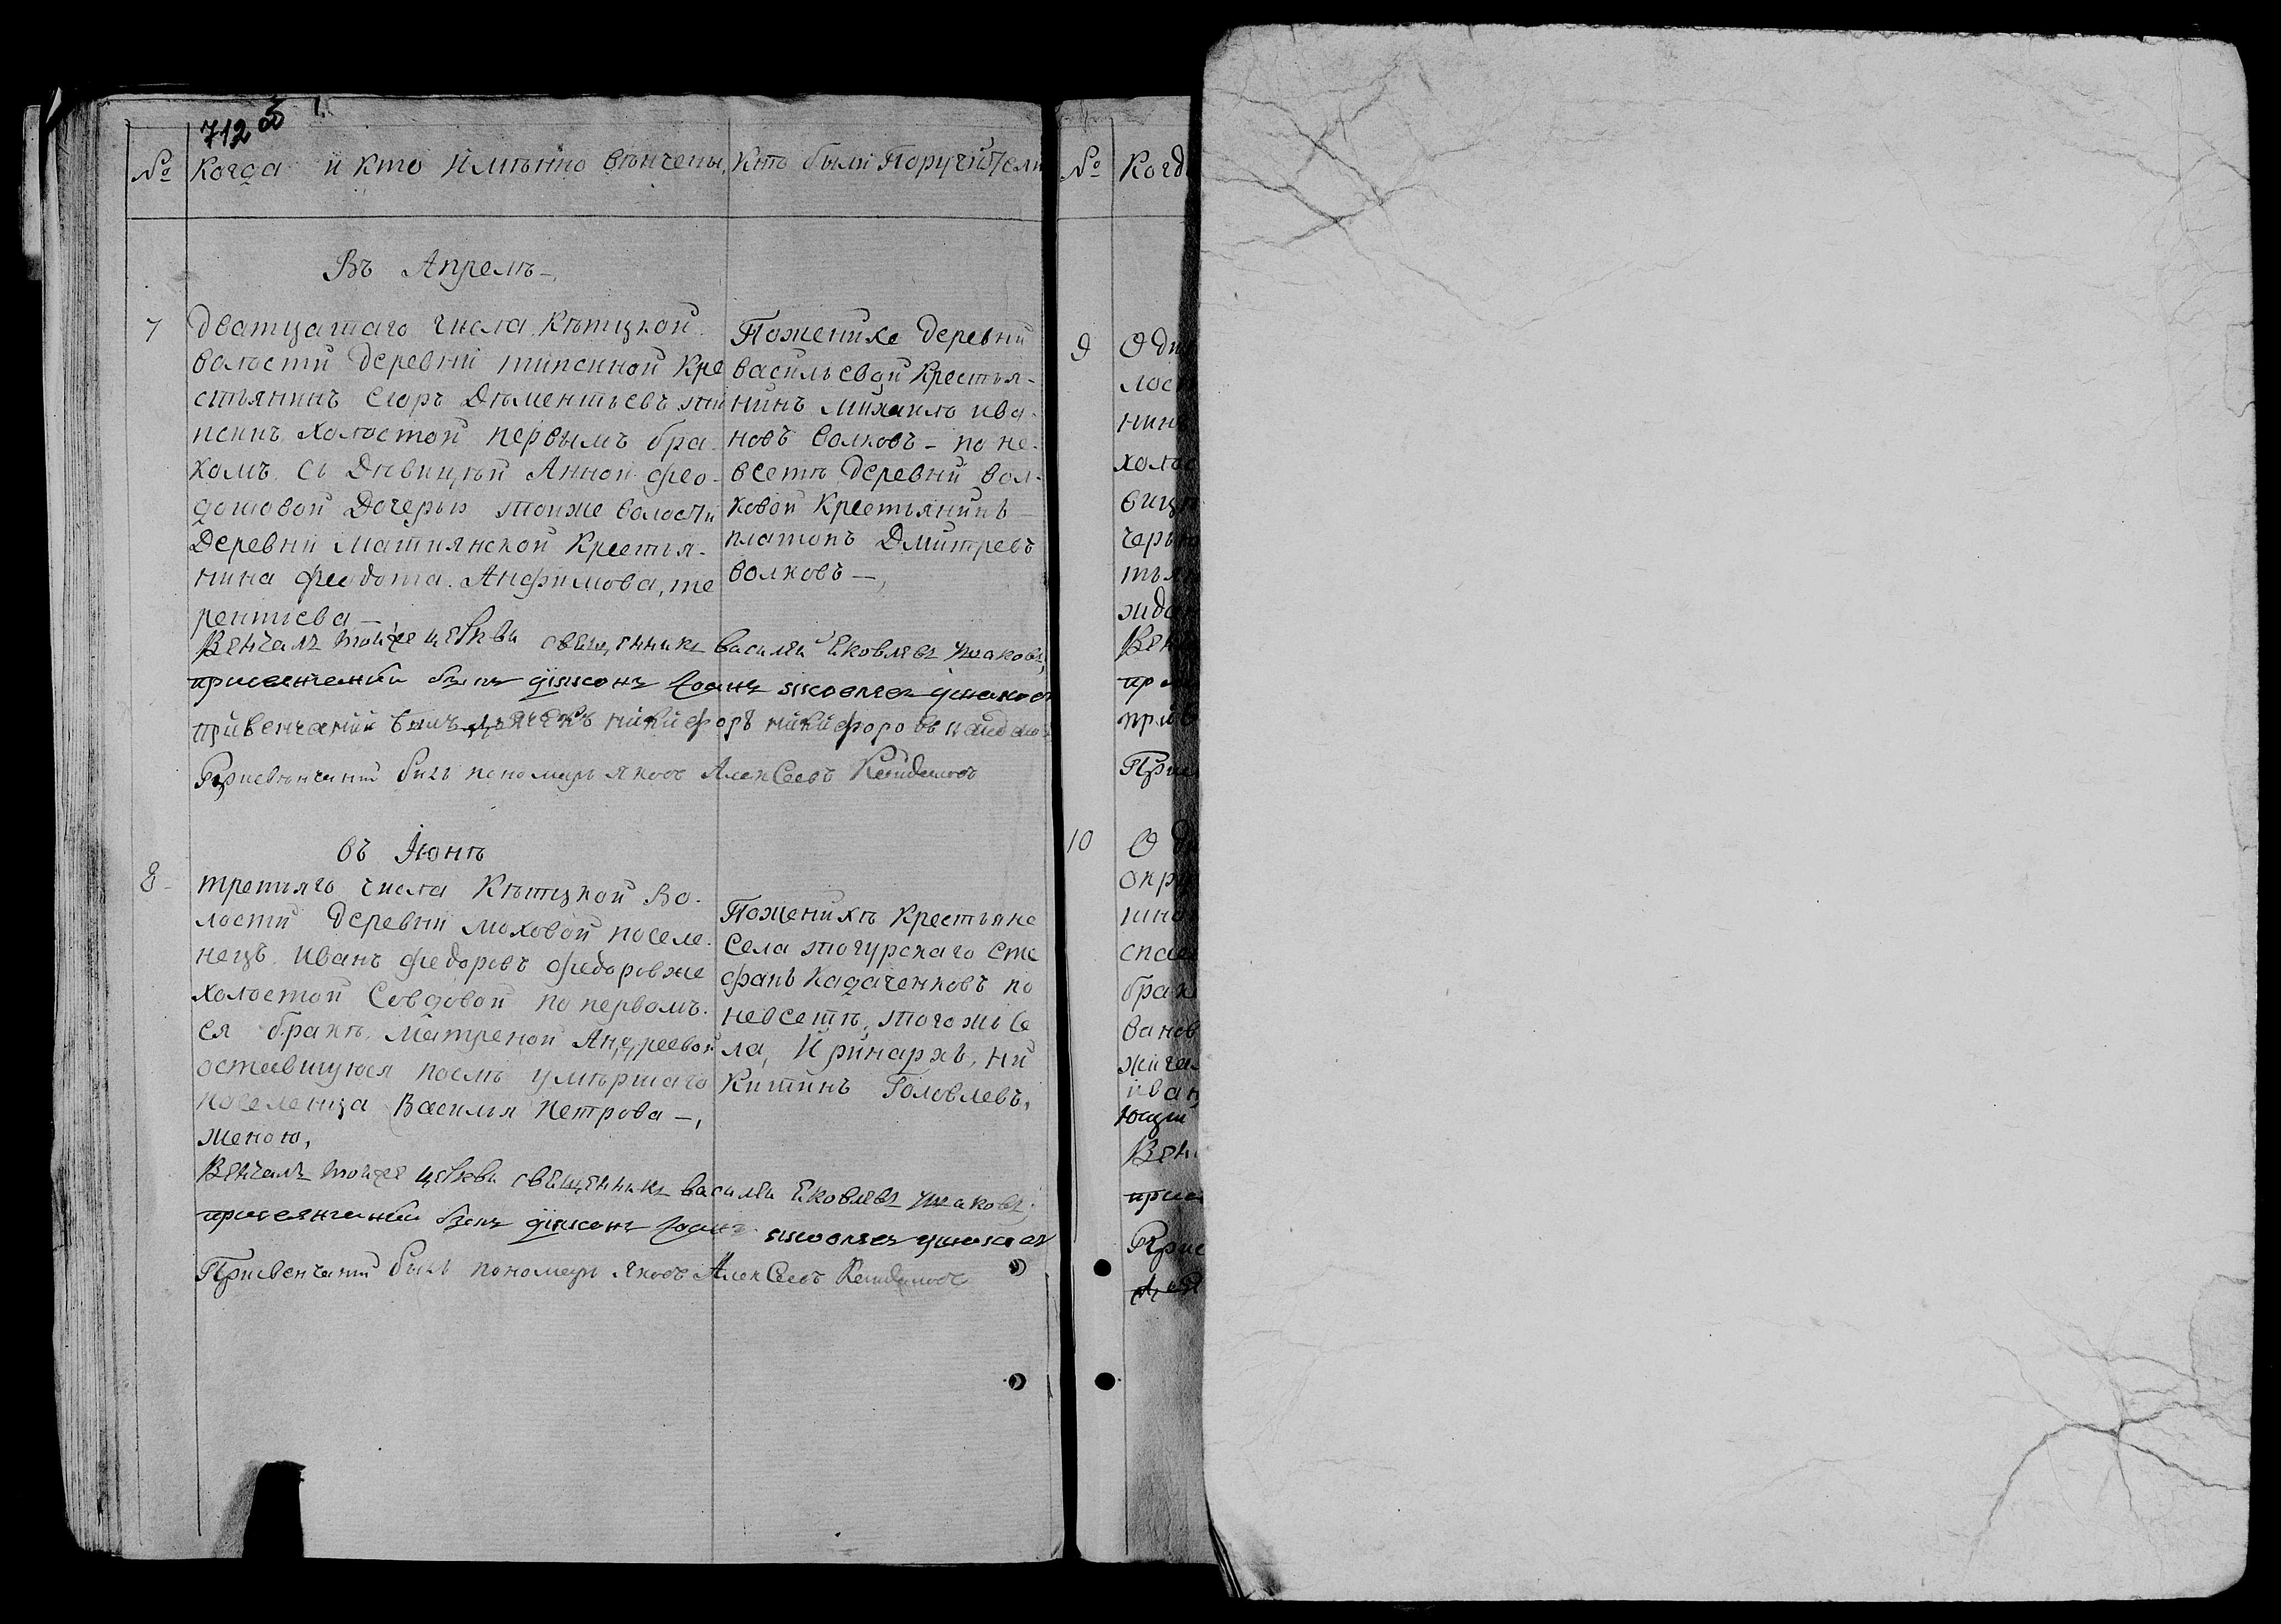 712 об
№ Когда и кто именно венчены, Кто были Поручители
Въ Апреле
7
Дватцатаго числа Кѣтцкой
волости деревни типсиной Кре
стьянинъ Егоръ Дѣментьевъ
холостой первымъ бра-
комъ съ Дѣвицѣй Анной фео-
дотовой Дочерью тойже волости
Деревни Матиянской Крестья-
нина феодота Анфимова, те
рентиева
Поженихе деревни
васильевой Крестья-
нинъ михаило ива-
новъ волковъ - по не-
весте деревни вол-
ковой Крестьянинъ
платонъ Дмитревъ
волковъ
Венчалъ тойже церкви священникъ василеи Яковлевъ ушаковъ,
привенчании былъ диаконъ Иоаннъ яковлевъ ушаковъ
привенчании былъ дячекъ никифоръ никифоровъ
Привѣнчании былъ пономарь яковъ Алексеевъ
въ Июнѣ
8
третияго числа Кѣтцкой Во-
лости деревни моховой поселе-
нецъ Иванъ федоровъ федоровже
холостой Совдовой по первомъ
ея бракѣ, Матреной Андреевой
оставшуюся послѣ умѣршаго
поселенца Василья Петрова,
женою,
Поженихѣ Крестьяне
Села тогурскаго Сте
фанъ Кадаченковъ по
невестѣ, тогожъ Се
ла, Иринархъ, ни
Китинъ Головлевъ,
Венчалъ тойже церкви священникъ василеи Яковлевъ ушаковъ,
привенчании былъ диаконъ Иоаннъ яковлевъ ушаковъ
Привенчании былъ пономарь яковъ Алексеевъ
№ Когд
9
лос
нин
холос
вицѣ
10
окр
спас
брак
ванов
Вен